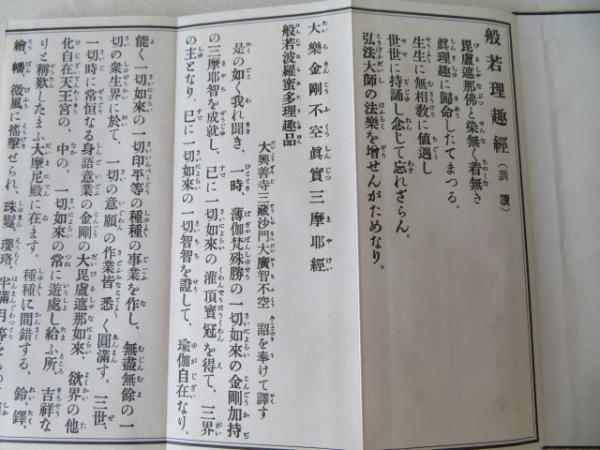 般若理趣經（訓讀）
毘盧遮那佛と染無く著無き
眞理趣に歸命したてまつる。
生生に無相教に値遇し
世世に持誦し念じて忘れざらん。
弘法大師の法樂を增せんがためなり。
大樂金剛不空眞實三摩耶經
般若波羅蜜多理趣品
大興善寺三藏沙門大廣智不空　詔を奉けて譯す
是の如く我れ聞き、一時、薄伽梵殊勝の一切如來の金剛加持
の三摩耶智を成就し、已に一切如來の灌頂寶冠を得て、三界
の主となり、已に一切如來の一切智智を證して、瑜伽自在なり、
能く一切如來の一切印平等の種種の事業を作し、無盡無餘の一
切の衆生界に於て、一切の意願の作業皆悉く圓滿す。三世、
一切時に常恒なる身語意業の金剛の大毘盧遮那如來、欲界の他
化自在天王宮の、中の、一切如來の常に遊處し給ふ所、吉祥な
りと稱歎したまふ大摩尼殿に在ます。種種に間錯する、鈴、鐸、
繪幡微風に搖擊せられ、珠鬘、瓔珞、半滿月等をもつて